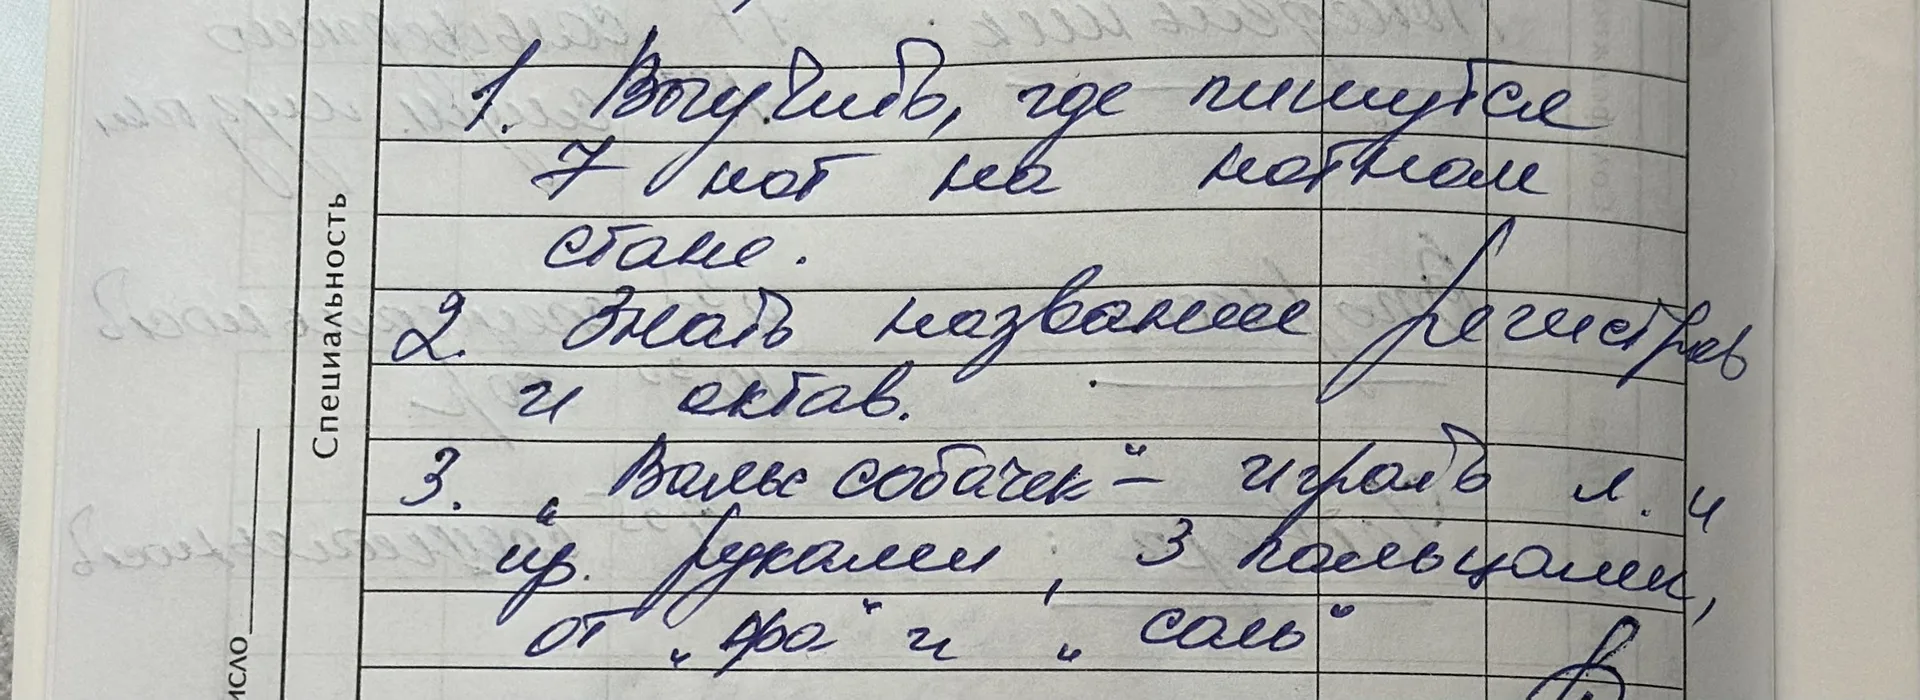 1. Выучить, где пишутся
7 нот на нотном
стане.
2. Знать название регистров
и октав.
3. „Вальс собачек“ – играть л. и
пр. руками, 3 пальцами,
от „фа“ и „соль“
Специальность
исло